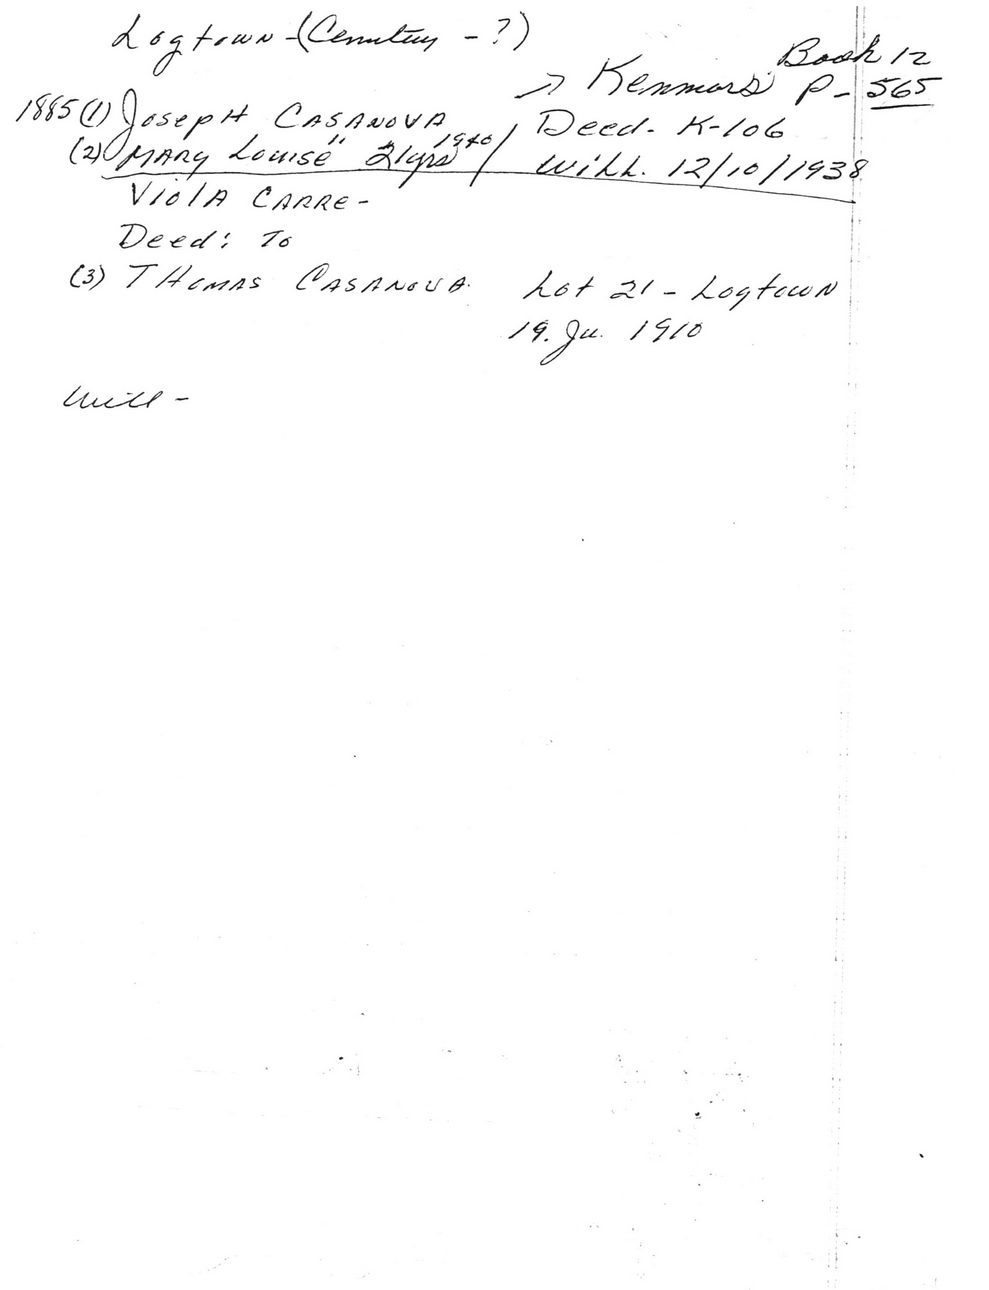 Logtown - (Cemetery - ?)
Book 12
→ Kenmore's P - 565
1885 (1) Joseph CASANOVA Deed - K-106
(2) MARY Louise " 21yrs 1940 / Will. 12/10/1938
Viola CARRE -
Deed: To
(3) THOMAS CASANOVA. Lot 21 - Logtown
19. Ju. 1910
Will -